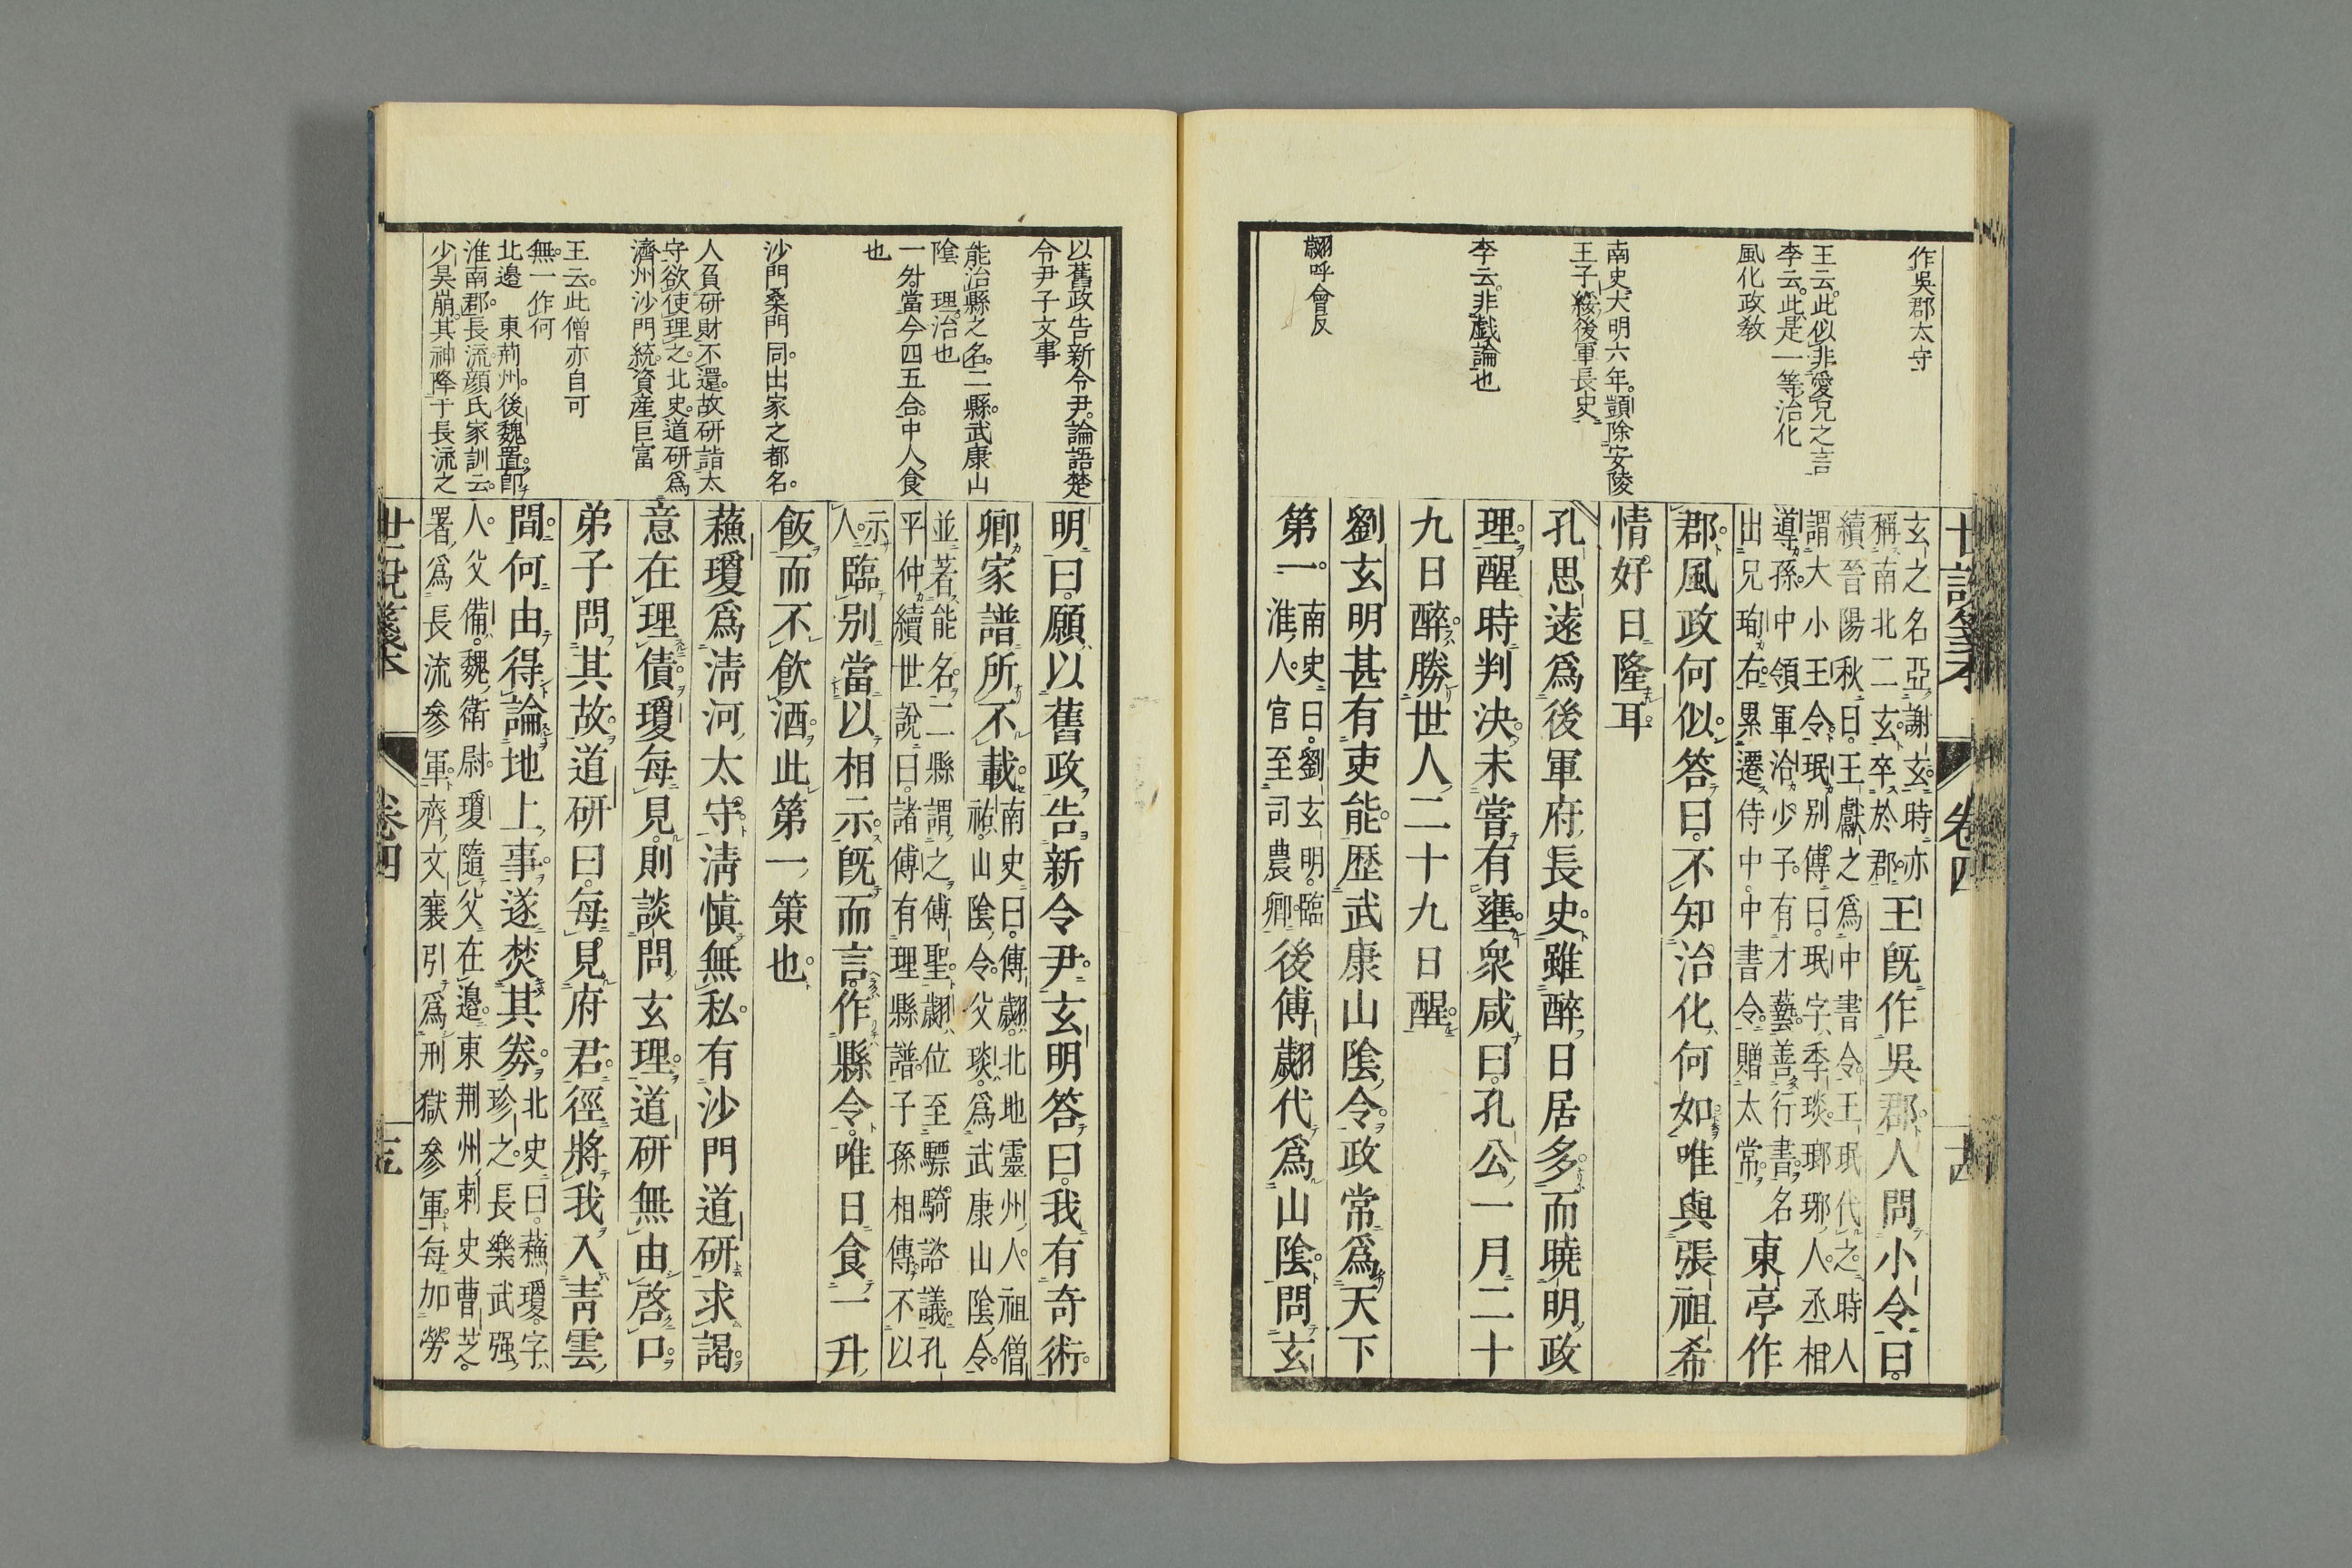 作吳郡太守
王云此似非愛兄之言
李云此是一等治化
風化政敎
南史大明六年顗除安陵
王子綏後軍長史
李云非戲論也
翽呼會反
玄之名亞謝玄時亦
稱南北二玄卒於郡
王旣作吳郡人問小令曰
續晉陽秋曰王獻之爲中書令王珉代之時人
謂大小王令珉别傳曰珉字季琰瑯琊人丞相
導孫中領軍洽少子有才藝善行書名
出兄珣右累遷侍中中書令贈太常
東亭作
郡風政何似答曰不知治化何如唯與張祖希
情好日隆耳
孔思遠爲後軍府長史雖醉日居多而曉明政
理醒時判決未嘗有壅衆咸曰孔公一月二十
九日醉勝世人二十九日醒
劉玄明甚有吏能歷武康山陰令政常爲天下
第一
南史曰劉玄明臨
淮人官至司農卿
後傅翽代爲山陰問玄
卷四
以舊政告新令尹論語楚
令尹子文事
能治縣之名二縣武康山
陰 理治也
一升當今四五合中人食
也
沙門桑門同出家之都名
人負研財不還故研詣太
守欲使理之北史道研爲
濟州沙門統資産巨富
王云此僧亦自可
無一作何
北邊 東荊州後魏置卽
淮南郡長流顏氏家訓云
少昊崩其神降于長流之
明曰願以舊政告新令尹玄明答曰我有奇術
卿家譜所不載
南史曰傅翽北地靈州人祖僧
祐山陰令父琰爲武康山陰令
並著能名二縣謂之傅聖翽位至驃騎諮議孔
平仲續世說曰諸傅有理縣譜子孫相傳不以
示
人
臨别當以相示旣而言作縣令唯日食一升
飯而不飮酒此第一策也
蘓瓊爲淸河太守淸愼無私有沙門道研求謁
意在理債瓊每見則談問玄理道研無由啓口
弟子問其故道研曰每見府君徑將我入靑雲
間何由得論地上事遂焚其劵
北史曰蘓瓊字
珍之長樂武强
人父備魏衛尉瓊隨父在邊東荆州刺史曹芝
署爲長流參軍齊文襄引爲刑獄參軍每加勞
世說箋本
卷四